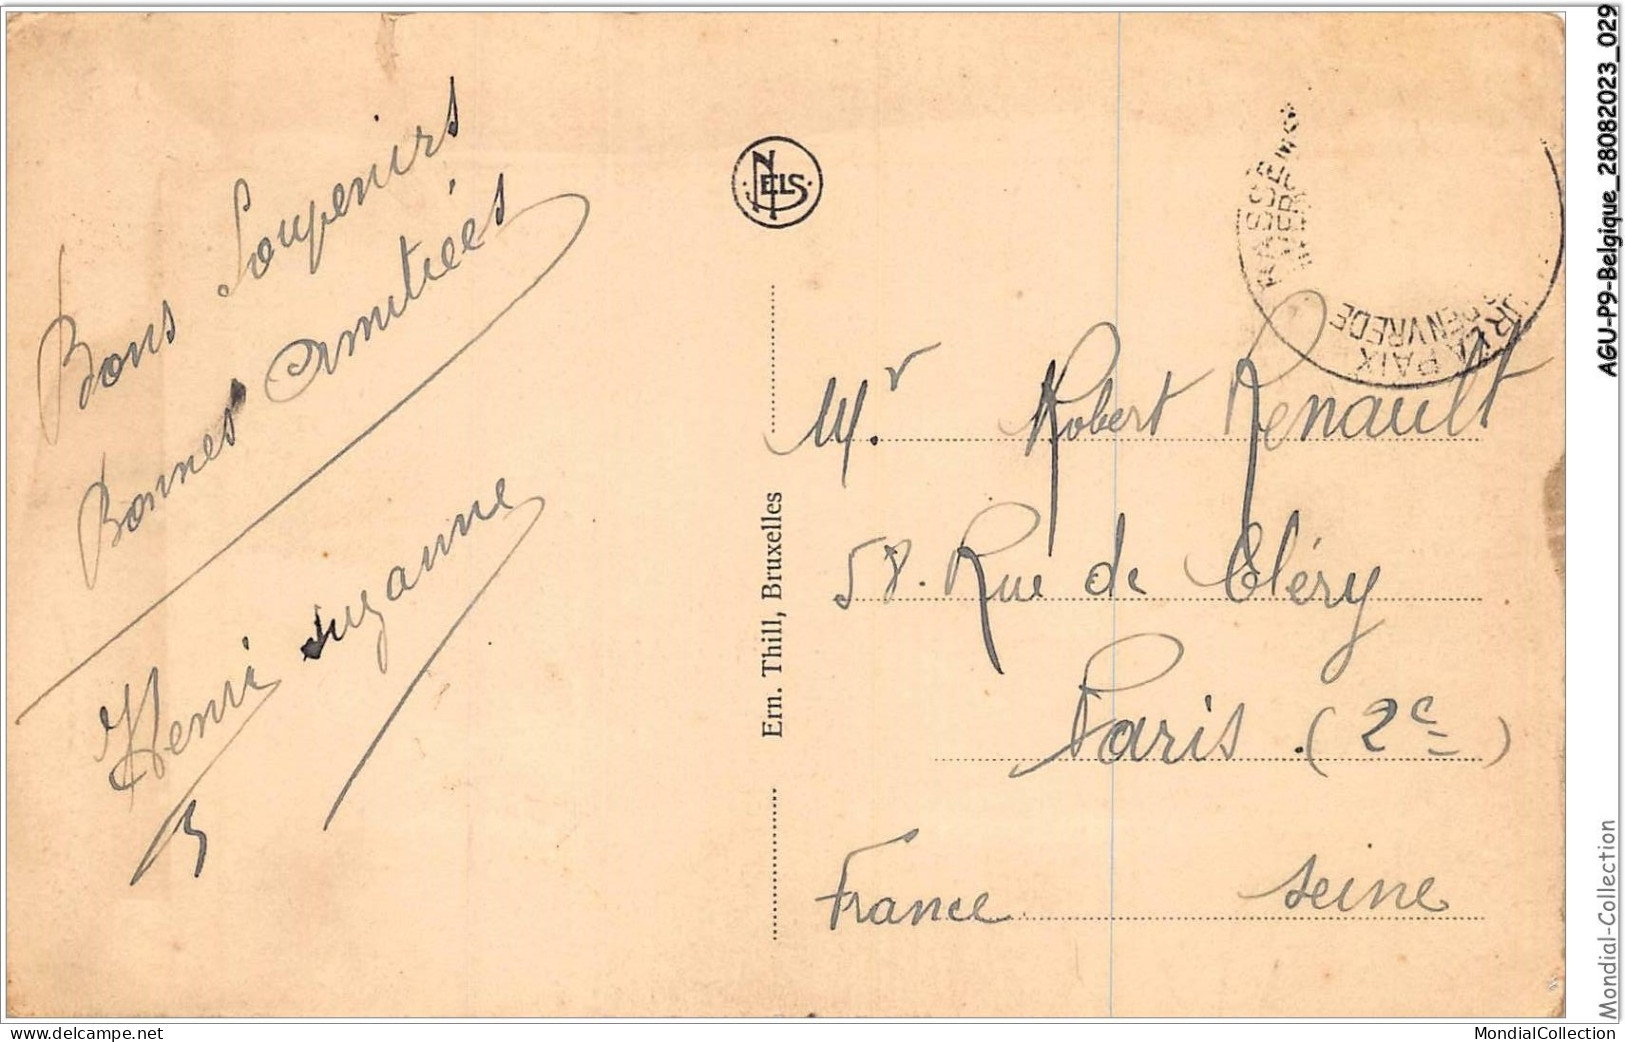 Bons Souvenirs
Bonnes Amitiées
Henri Suzanne
NELS
Ern. Thill, Bruxelles
PAIX
Mr. Robert Renault
58. Rue de Cléry
Paris. (2e)
France Seine
AGU-P9-Belgique_28082023_029
Mondial-Collection
www.delcampe.net
MondialCollection